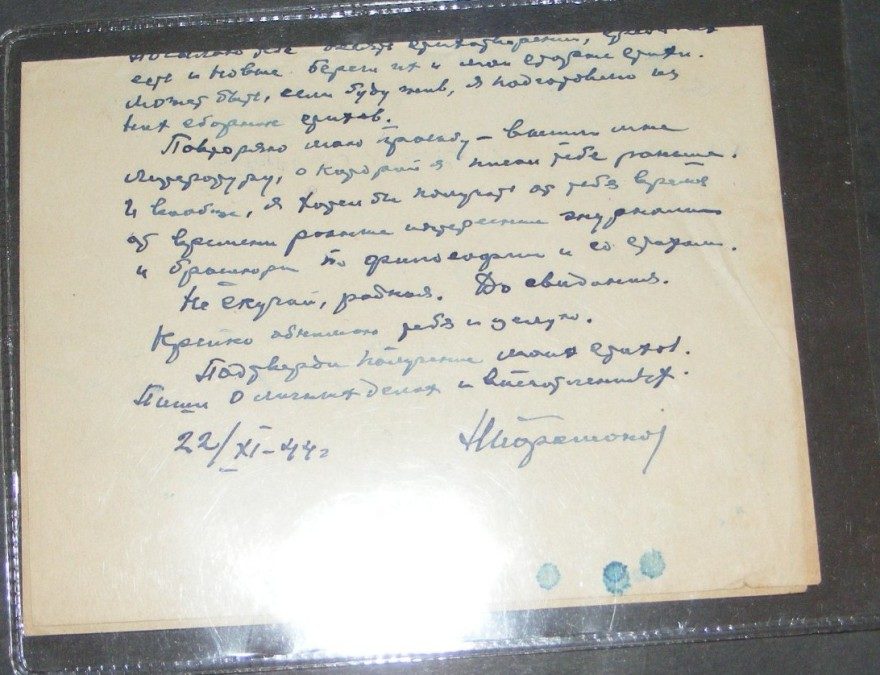 Посылаю тебе десять стихотворений, среди них
есть и новые. Береги их и мои старые стихи.
Может быть, если буду жив, я подготовлю из
них сборник стихов.
Повторяю мою просьбу – вышли мне
литературу, о которой я писал тебе раньше.
И вообще, я хотел бы получать от тебя время
от времени разные интересные журналы
и брошюры по философии и со стихами.
Не скучай, родная. До свидания.
Крепко обнимаю тебя и целую.
Подтверди получение моих стихов.
Пиши о личных делах и впечатлениях.
22/XI-44г